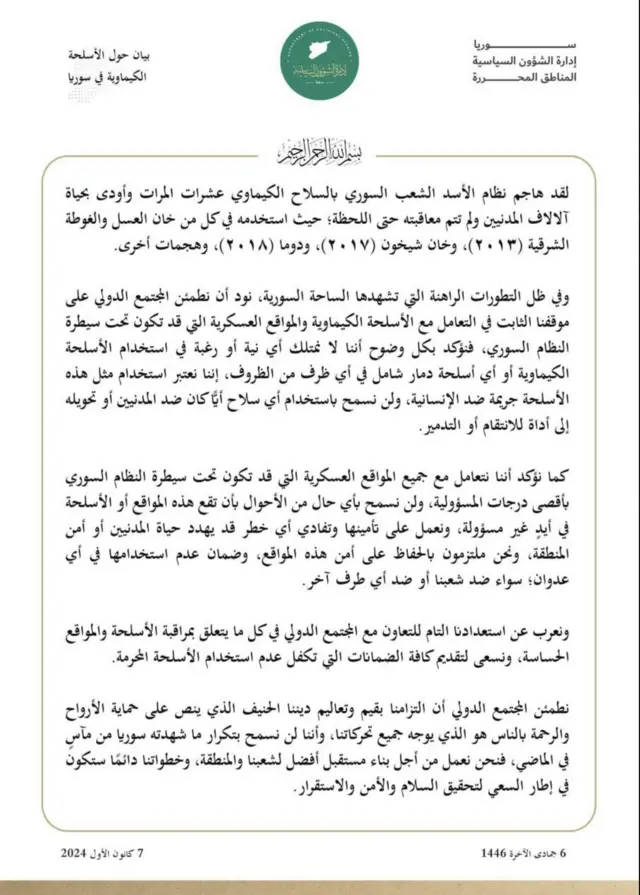 ســـــــوريا
إدارة الشؤون السياسية
المناطق المحــررة
DEPARTMENT OF POLITICAL AFFAIRS
إدارة الشؤون السياسية
بيان حول الأسلحة
الكيماوية في سوريا
بسم الله الرحمن الرحيم
لقد هاجم نظام الأسد الشعب السوري بالسلاح الكيماوي عشرات المرات وأودى بحياة
آلالاف المدنيين ولم تتم معاقبته حتى اللحظة؛ حيث استخدمه في كل من خان العسل والغوطة
الشرقية (٢٠١٣)، وخان شيخون (٢٠١٧)، ودوما (٢٠١٨)، وهجمات أخرى.
وفي ظل التطورات الراهنة التي تشهدها الساحة السورية، نود أن نطمئن المجتمع الدولي على
موقفنا الثابت في التعامل مع الأسلحة الكيماوية والمواقع العسكرية التي قد تكون تحت سيطرة
النظام السوري، فنؤكد بكل وضوح أننا لا نمتلك أي نية أو رغبة في استخدام الأسلحة
الكيماوية أو أي أسلحة دمار شامل في أي ظرف من الظروف، إننا نعتبر استخدام مثل هذه
الأسلحة جريمة ضد الإنسانية، ولن نسمح باستخدام أي سلاح أيًّا كان ضد المدنيين أو تحويله
إلى أداة للانتقام أو التدمير.
كما نؤكد أننا نتعامل مع جميع المواقع العسكرية التي قد تكون تحت سيطرة النظام السوري
بأقصى درجات المسؤولية، ولن نسمح بأي حال من الأحوال بأن تقع هذه المواقع أو الأسلحة
في أيدٍ غير مسؤولة، ونعمل على تأمينها وتفادي أي خطر قد يهدد حياة المدنيين أو أمن
المنطقة، ونحن ملتزمون بالحفاظ على أمن هذه المواقع، وضمان عدم استخدامها في أي
عدوان؛ سواء ضد شعبنا أو ضد أي طرف آخر.
ونعرب عن استعدادنا التام للتعاون مع المجتمع الدولي في كل ما يتعلق بمراقبة الأسلحة والمواقع
الحساسة، ونسعى لتقديم كافة الضمانات التي تكفل عدم استخدام الأسلحة المحرمة.
نطمئن المجتمع الدولي أن التزامنا بقيم وتعاليم ديننا الحنيف الذي ينص على حماية الأرواح
والرحمة بالناس هو الذي يوجه جميع تحركاتنا، وأننا لن نسمح بتكرار ما شهدته سوريا من مآسٍ
في الماضي، فنحن نعمل من أجل بناء مستقبل أفضل لشعبنا والمنطقة، وخطواتنا دائمًا ستكون
في إطار السعي لتحقيق السلام والأمن والاستقرار.
6 جمادى الآخرة 1446
7 كانون الأول 2024